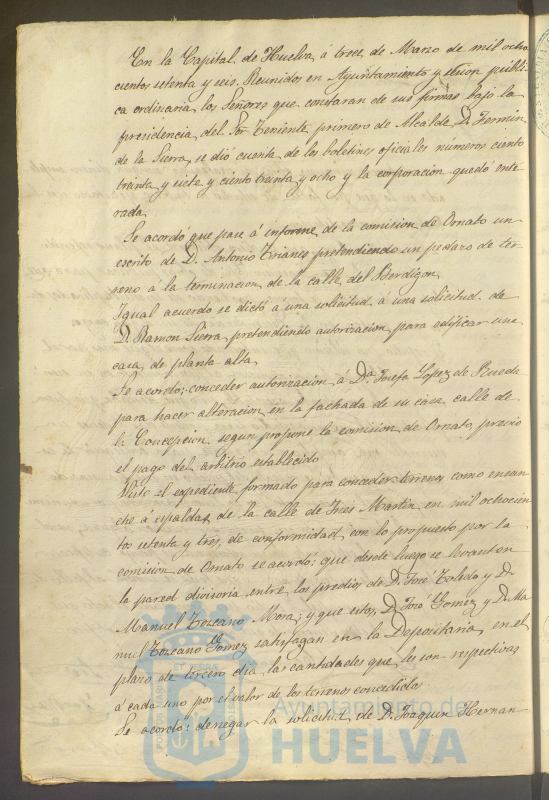 En la Capital de Huelva á trece de Marzo de mil ocho
cientos setenta y seis. Reunidos en Ayuntamiento y sesion públi-
ca ordinaria los Señores que constaran de sus firmas bajo la
presidencia del Sor Teniente primero de Alcalde D. Fermin
de la Sierra, se dió cuenta de los boletines oficiales números ciento
treinta y siete y ciento treinta y ocho y la corporacion quedó ente-
rada.
Se acordó que pase á informe de la comision de Ornato un
escrito de D. Antonio Trianes pretendiendo un pedazo de ter-
reno á la terminacion de la calle del Berdigon.
Igual acuerdo se dictó á una solicitud á una solicitud de
D. Ramon Sierra pretendiendo autorizacion para edificar una
casa de planta alta.
Se acordo: conceder autorizacion á Da Josefa Lopez de Rueda
para hacer alteracion en la fachada de su casa calle de
la Concepcion, segun propone la comision de Ornato, previo
el pago del arbitrio establecido
Visto el expediente formado para conceder terrenos como ensan
che á espaldas de la calle de Ines Martin en mil ochocien
tos setenta y tres, de conformidad con lo propuesto por la
comision de Ornato se acordó: que desde luego se levanten
la pared divisoria entre los predios de D. José Toledo y D.
Manuel Toscano Mora; y que estos, D. José Gomez y D. Ma
nuel Toscano Gomez satisfagan en la Depositaria en el
plazo de tercero dia las cantidades que les son respectivas
á cada uno por el valor de los terrenos concedidos
Se acordó: denegar la solicitud de D. Joaquin Hernan-
Ayuntamiento de
HUELVA